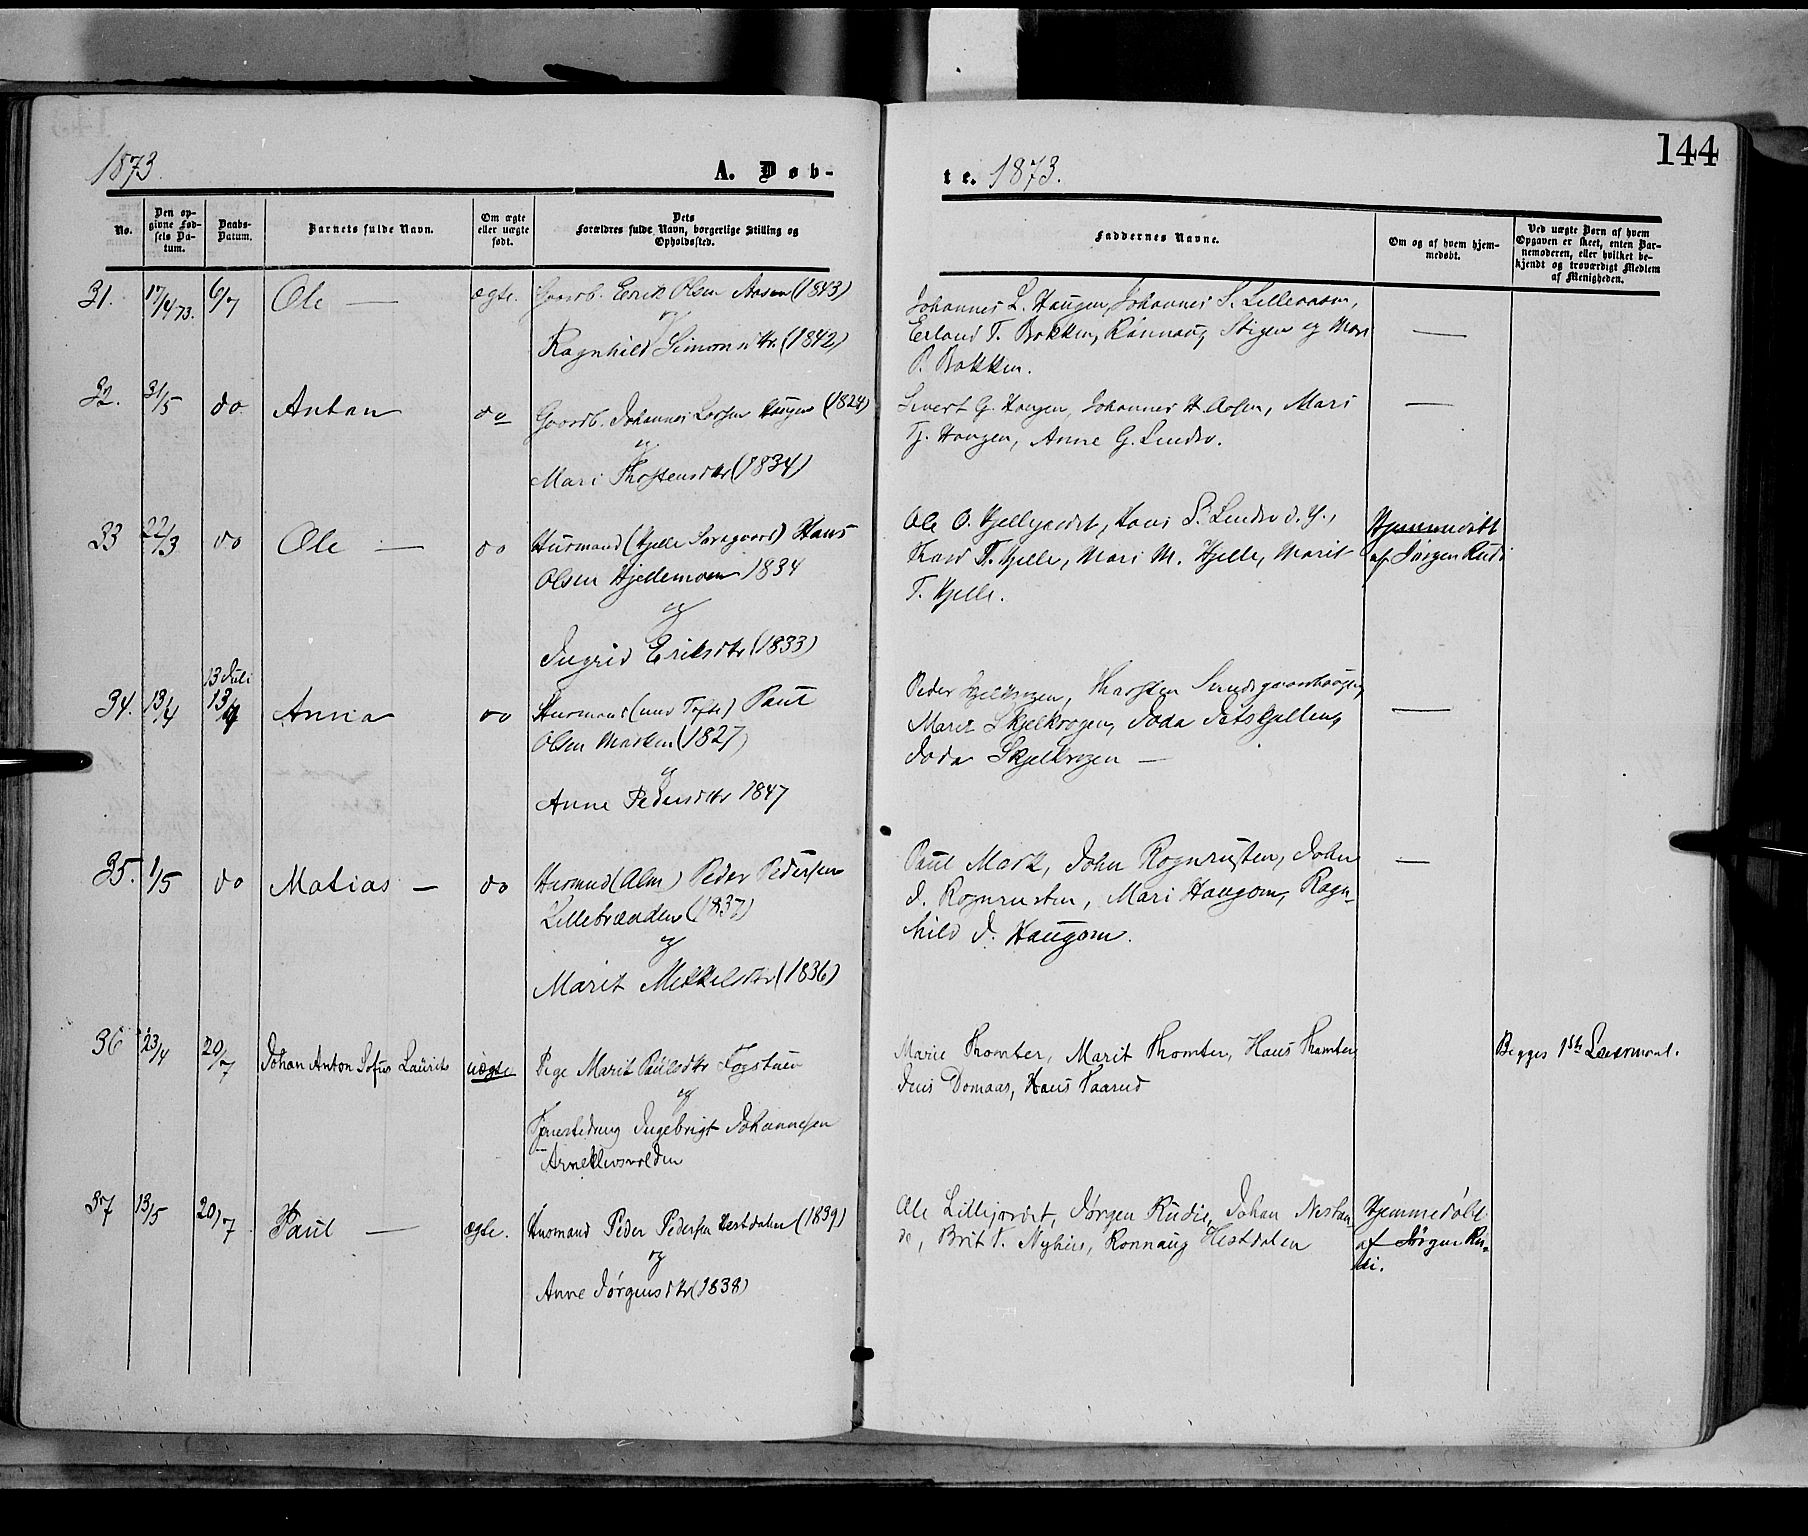 144
1873.
A. Døb-
te. 1873.
No.
Den op-
givne Fød-
sels Da-
tum.
Daabs-
Datum.
Barnets fulde Navn.
Om ægte
eller uægte
født.
Dets
Forældres fulde Navn, borgerlige Stilling og
Opholdssted.
Faddernes Navne.
Om og af hvem hjem-
medøbt.
Ved uægte Børn af hvem
Opgaven er skeet, enten Bar-
nemoderen, eller hvilket be-
kjendt og troværdigt Medlem
af Menigheden.
31. 17/4 73. 6/7 Ole — ægte. Gaardb. Erik Olsen Aasen (1843)
og
Ragnhild Simonsdtr. (1842)
Johannes L. Haugen, Johannes S. Lilleaasen,
Erland T. Bakken, Rønnaug Stigen og Mari
P. Bakken.
—
32. 31/5 do Anton do Gaardb. Johannes Larsen Haugen (1824)
og
Mari Thostensdtr (1834)
Sivert G. Haugen, Johannes H. Aasen, Mari
Tj. Haugen, Anne G. Lindsø.
—
33 22/3 do Ole — do Husmand (Hjelle Søregaard) Hans
Olsen Hjellemoen 1834
og
Ingrid Eriksdtr (1833)
Ole O. Hjellejordet, Hans S. Lindsø d. Y.,
T. Hjelle, Mari M. Hjelle, Marit
T. Hjelle.
Hjemmedøbt
af Jørgen Rudi
34. 13/4 13 Juli
Anna do Husmand Paul
Olsen Marken (1827)
og
Anne Pedersdtr 1847
Peder Skjelkvogen, Thorsten
Marit Skjelkvogen,
Skjelkvogen —
—
35. 1/5 do Matias — do Husmand (Alm) Peder Pedersen
Lillebrænden (1837)
og
Marit Mikkelsdtr (1836)
Paul Mork, John Rognrusten, John
J. Rognrusten, Mari Haugom, Ragn-
hild J. Haugom.
—
36 23/4 20/7 Johan Anton Sofus Laurits uægte Pige Marit Paulsdtr Fogstuen
og
Tjenestedreng Ingebrigt Johannesen
Arneklevsvolden
Marie Thomter, Marit Thomter, Hans Thomter
Jens Domaas, Hans Taarud
Begges 1ste Leiermaal.
37 13/5 20/7 Paul — ægte. Husmand Peder Pedersen Hestdalen (1839)
og
Anne Jørgensdtr (1838)
Ole Lillejordet, Jørgen Rudi, Johan Nestan-
de, Brit T. Nyhus, Rønnaug Hestdalen
Hjemmedøbt
af Jørgen Ru-
di.